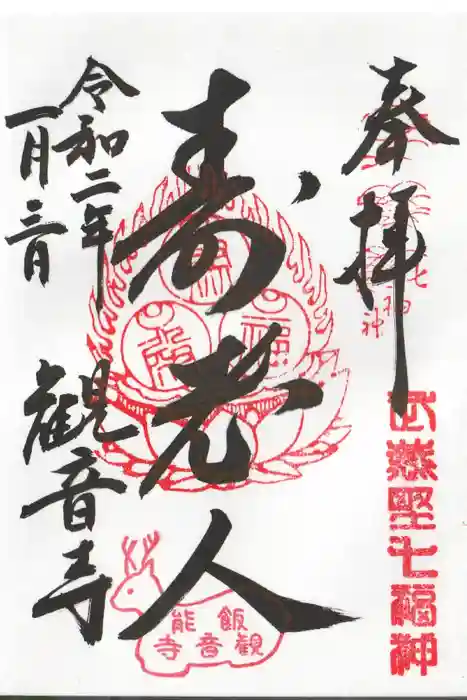 奉拝
武蔵野七福神
寿老人
福
飯能
観音寺
令和二年
一月三日
観音寺